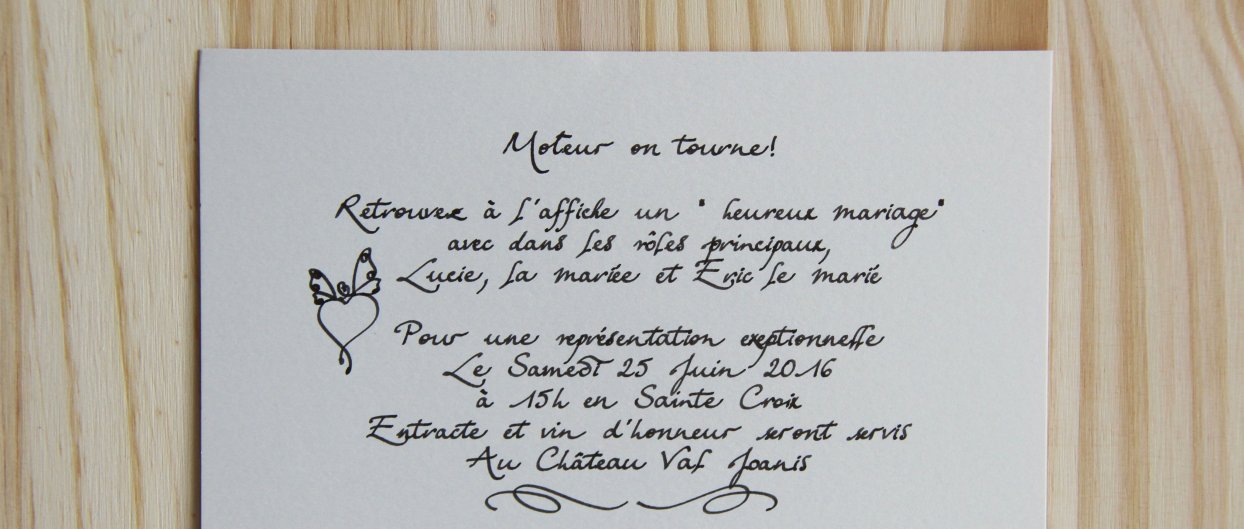 Moteur on tourne!
Retrouvez à l'affiche un " heureux mariage"
avec dans les rôles principaux,
Lucie, la mariée et Eric le marié
Pour une représentation exeptionnelle
Le Samedi 25 Juin 2016
à 15h en Sainte Croix
Entracte et vin d'honneur seront servis
Au Château Val Joanis